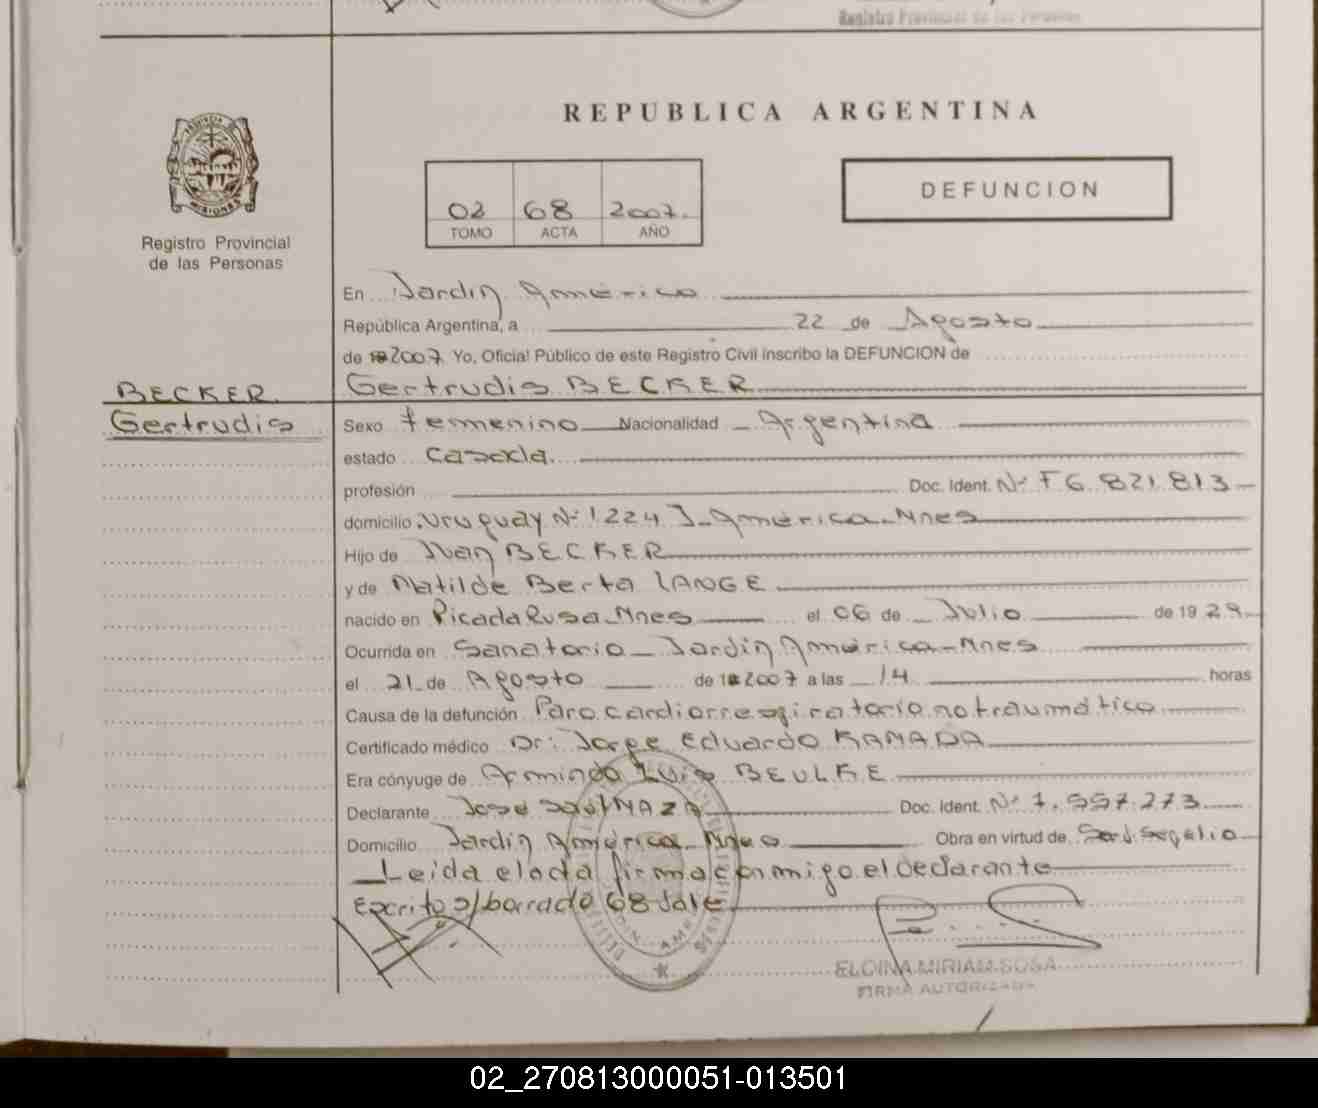 Registro Provincial de las Personas
REPUBLICA ARGENTINA
PROVINCIA DE
MISIONES
Registro Provincial
de las Personas
02 68 2007.
TOMO ACTA AÑO
DEFUNCION
En Jardín América
República Argentina, a 22 de Agosto
de 2007 Yo, Oficial Público de este Registro Civil inscribo la DEFUNCION de
BECKER
Gertrudis
Gertrudis BECKER
Sexo femenino Nacionalidad Argentina
estado Casada.
profesión Doc. Ident. Nº F6.821.813
domicilio Uruguay Nº 1224 J. América - Mnes
Hijo de Juan BECKER
y de Matilde Berta LANGE
nacido en Picada Rusa - Mnes el 06 de Julio de 1929
Ocurrida en Sanatorio - Jardín América - Mnes
el 21 de Agosto de 2007 a las 14 horas
Causa de la defunción Paro cardiorrespiratorio no traumático
Certificado médico Dr: Jorge Eduardo KAMADA
Era cónyuge de Armindo Luis BEULKE
Declarante José Saúl MAZA Doc. Ident. Nº 7.557.273
Domicilio Jardín América - Mnes Obra en virtud de Serv. Sepelio
Leida el acta firma conmigo el declarante
Escrito s/borrado 68 Vale
ELOINA MIRIAM SOSA
FIRMA AUTORIZADA
02_270813000051-013501